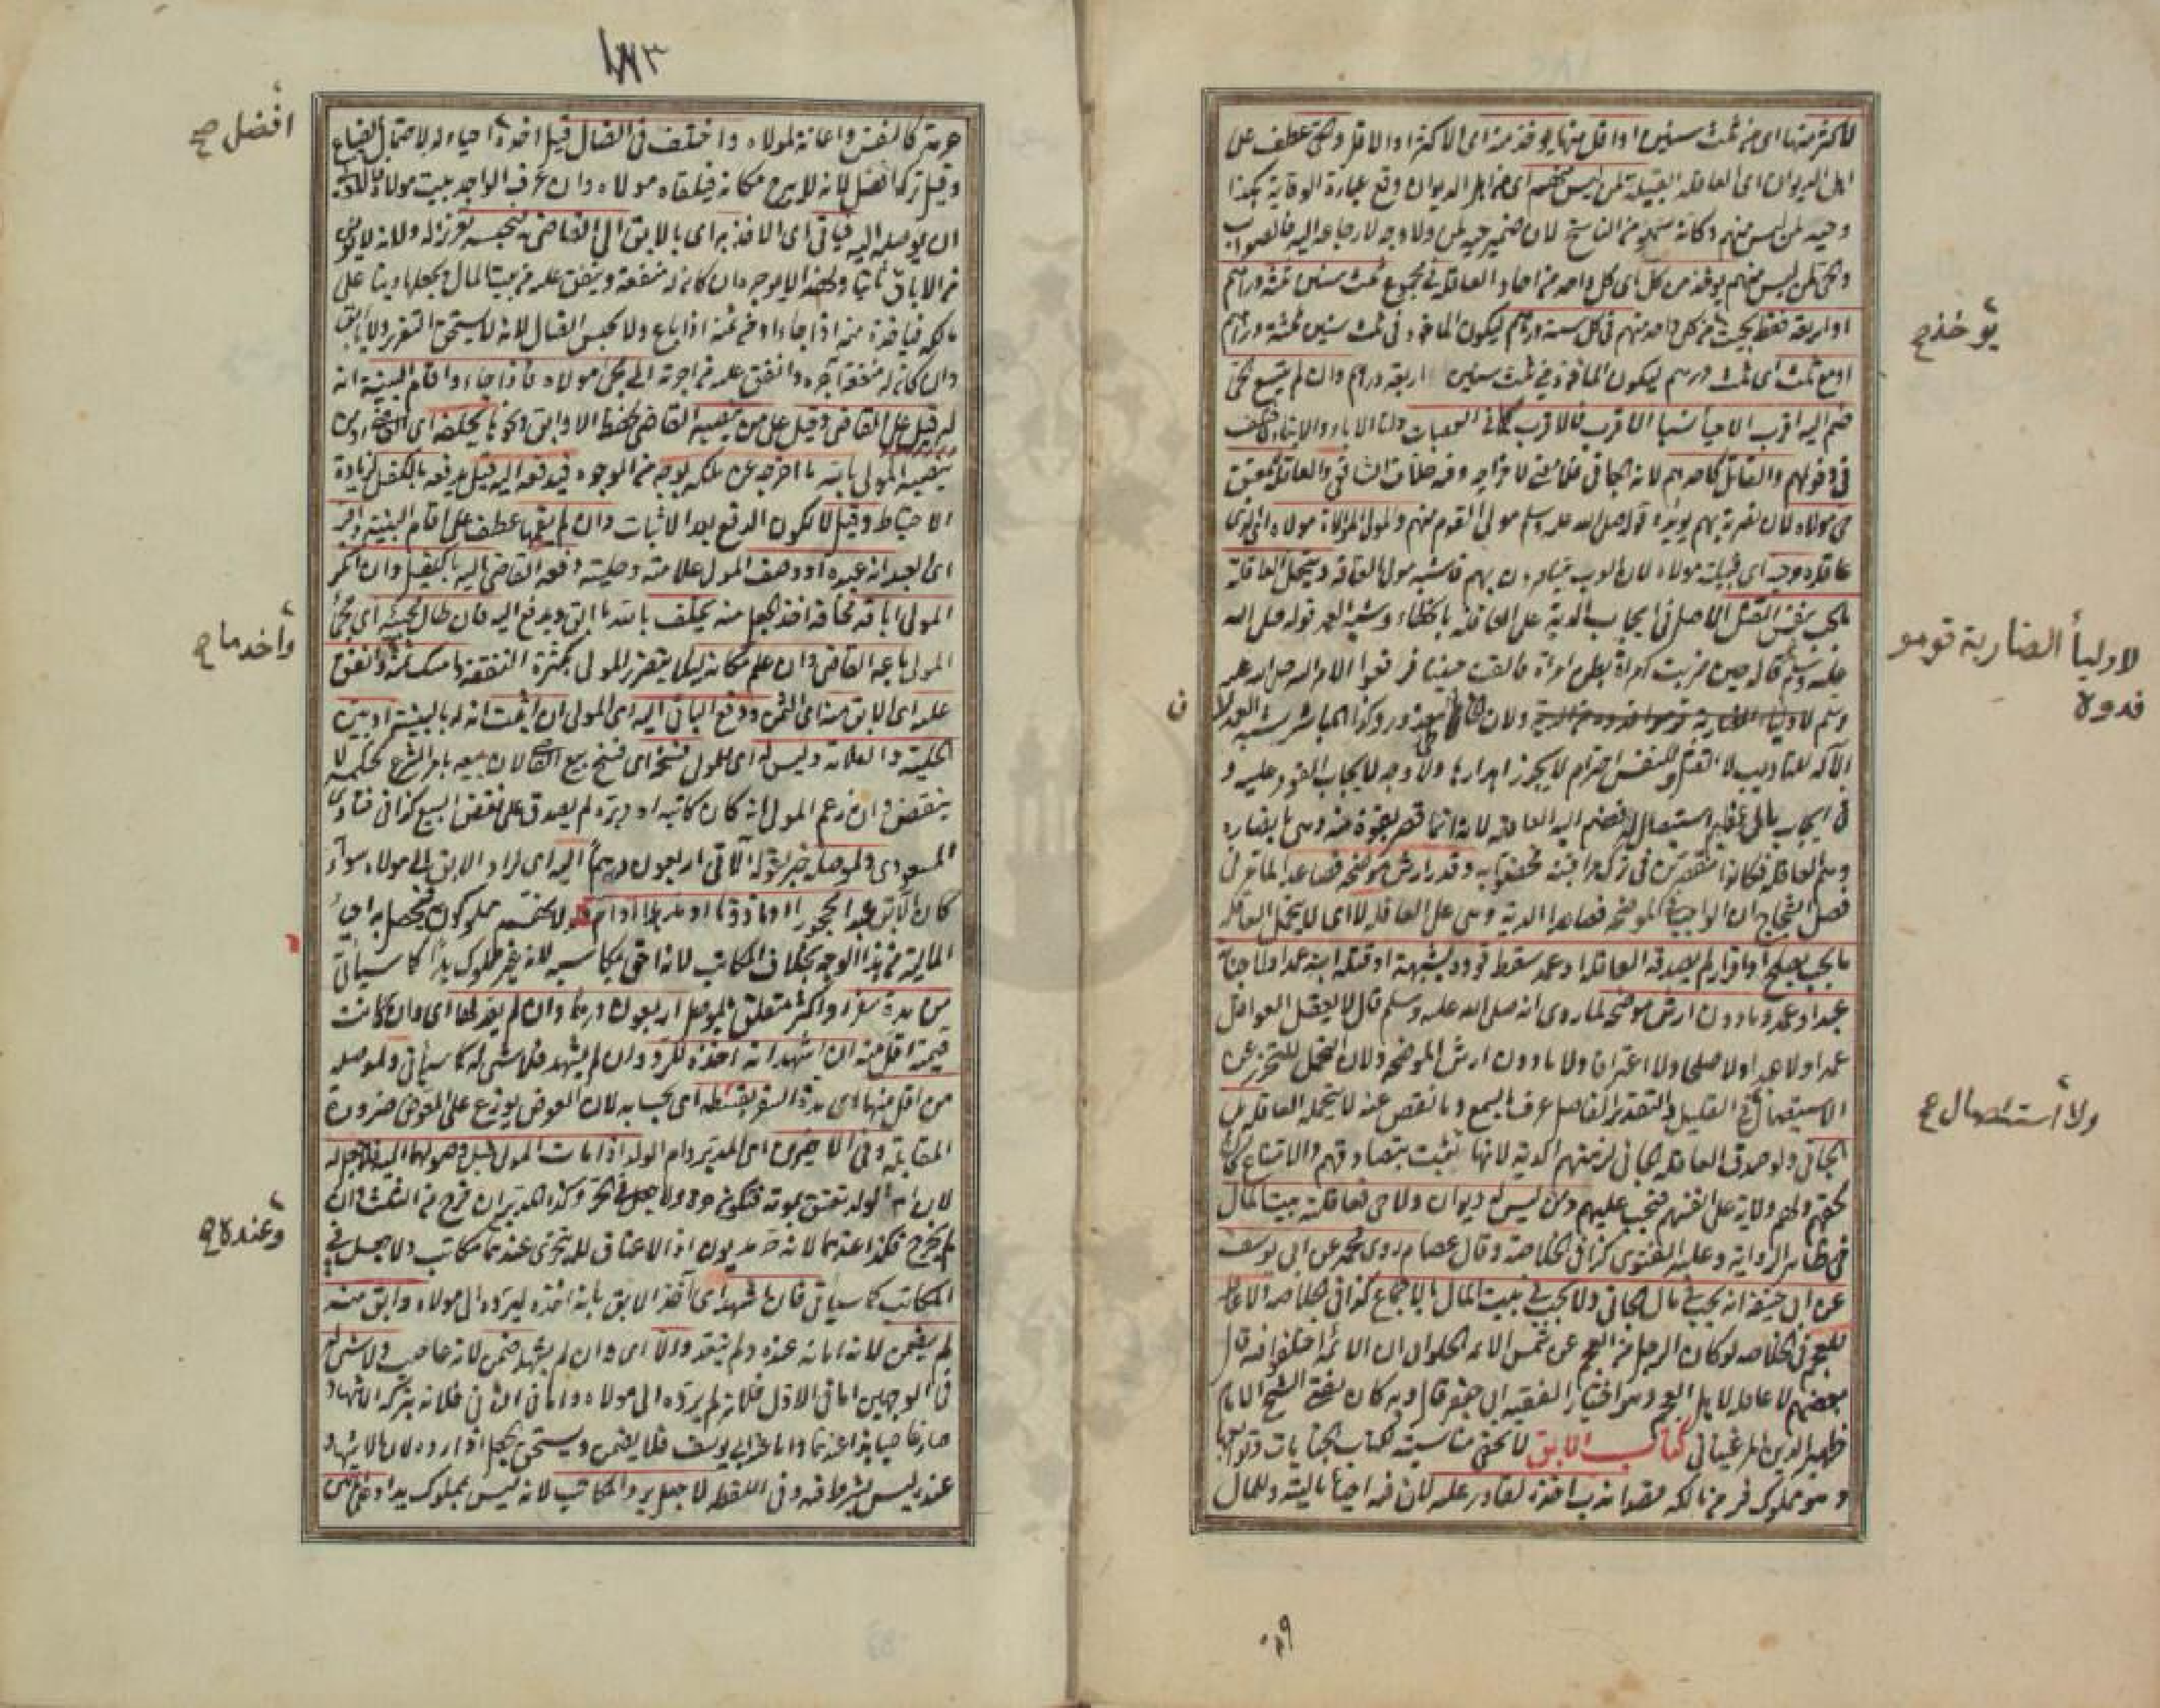 لاكثر منها اى من ثلث سنين او اقل منها يوخذ منه اى الاكثر او الاقل وحى عطف على
اهل الديوان اى العاقلة القبيلة لمن ليس منهم اى من اهل الديوان وقع عبارة الوقاية هكذا
وحيه لمن ليس منهم وكانه سهو من الناسخ لان ضمير حيه لمن ولا وجه لارجاعه اليه فالصواب
وحى لمن ليس منهم يوخذ من كل اى كل واحد من احاد العاقلة فى مجموع ثلث سنين ثلثة دراهم
او اربعة فقط بحيث من كل واحد منهم فى كل سنة درهم ليكون الماخوذ فى ثلث سنين ثلثة دراهم
او مع ثلث اى ثلث درهم ليكون الماخوذ فى ثلث سنين اربعة دراهم وان لم يتسع الحى
ضم اليه اقرب الاحياء نسبا الاقرب فالاقرب كما فى العصبات والاباء والابناء
فى دخولهم والقاتل كاحدهم لانه الجانى فلا معنى لاخراجه وفيه خلاف الشافعى والعاقلة للمعتق
حى مولاه لان نصرته بهم يؤيده قوله صلى الله عليه وسلم مولى القوم منهم ولمولى الموالاة مولاه
عاقلته وحيه اى قبيلة مولاه لان العرب يتناصرون بهم فاشبه مولى العتاقة ويتحمل العاقلة
ما يجب بنفس القتل الاصل فى ايجاب الدية على العاقلة بالخطاء وشبه العمد قوله صلى الله
عليه وسلم قاله حين ضربت امراة بطن امراة فالقت جنينا
وسلم لاولياء الضاربة قوموا فدوه ولان معذور وكذا المباشر شبه العمد
الآلة للتأديب لا القتل وللنفس احترام لا يجوز اهدارها ولا وجه لايجاب القود عليه و
فى ايجاب مال عظيم استيصال له فضم اليه العاقلة لانه انما قصر لقوة فيه وهى بانصاره
وهم العاقلة فكانوا مقصرين فى تركهم مراقبته فخصوا به وقدر ارش موضحة فصاعدا لما مر فى
فصل الشجاج ان الواجب فى الموضحة فصاعدا الدية وهى على العاقلة لا اى لا يتحمل العاقلة
ما يجب بصلح او اقرار لم يصدقه العاقلة او عمد سقط قوده بشبهة او قتله ابنه عمدا ولا جناية
عبد او عمد وما دون ارش موضحة لما روى انه صلى الله عليه وسلم قال لا يعقل العواقل
عمدا ولا عبدا ولا صلحا ولا اعترافا ولا ما دون ارش الموضحة ولان التحمل للتحرز عن
الاستيصال فى القليل والتقدير الفاصل عرف بالسمع وما نقص عنه لا يتحمله العاقلة بل
الجانى ولو صدق العاقلة الجانى لزمتهم الدية لانها تثبت بتصادقهم والامتناع كان
لحقهم ولهم ولاية على انفسهم فتجب عليهم ومن ليس له ديوان ولا حى فعاقلته بيت المال
فى ظاهر الرواية وعليه الفتوى كذا فى الخلاصة وقال عصام روى محمد عن ابى يوسف
عن ابى حنيفة انه يجب فى مال الجانى ولا يجب فى بيت المال بالاجماع كذا فى الخلاصة ولا عاقلة
للعجم فى الخلاصة لو كان الرجل من العجم عن شمس الائمة الحلوانى ان الائمة اختلفوا فيه قال
بعضهم لا عاقلة لاهل العجم وهو اختيار الفقيه ابى جعفر قال وبه كان يفتى الشيخ الامام
ظهير الدين المرغينانى كتاب الابق لا يخفى مناسبته لكتاب الجنايات وتوابعها
وهو مملوك فر من مالكه قصدا ندب اخذه لقادر عليه لان فيه احياء ماليته وللمال
يؤخذ ح
لاولياء الضاربة قومو
فدوه
ولا استئصال ح
١٨٣
حرمة كالنفس واعانة لمولاه واختلف فى الضال قيل اخذه احياء له لاحتمال الضياع
وقيل تركه افضل لانه لا يبرح مكانه فيلقاه مولاه وان عرف الواجد بيت مولاه
ان يوصله اليه فياتى اى الاخذ به اى بالابق الى القاضى فيحبسه تعزيرا له ولانه لا يؤمن
من الاباق ثانيا ولهذا لا يوجره وان كان له منفعة وينفق عليه من بيت المال ويجعلها دينا على
مالكه فياخذه منه اذا جاء او من ثمنه اذا باع ولا يحبس الضال لانه لا يستحق التعزير ولا يأبق
وان كان له منفعة آجره وانفق عليه من اجرته الى مجئ مولاه فاذا جاء واقام البينة انه
له قيل على القاضى وقيل على من ينصبه القاضى لحفظ الاوابق ونحوها يحلفه اى القاضى او من
ينصبه المولى بالله ما اخرجه عن ملكه بوجه من الوجوه فيدفعه اليه قيل يدفعه بالكفيل لزيادة
الاحتياط وقيل لا لكون الدفع بعد الاثبات وان لم يقمها عطف على اقام البينة واقر
اى العبد انه عبده او وصف المولى علامته وحليته دفعه القاضى اليه بالكفيل وان انكر
المولى اباقه مخافة اخذ الجعل منه يحلف بالله ما ابق ويدفع اليه فان طال مجيئه اى مجئ
المولى باعه القاضى وان علم مكانه ليلا يتضرر المولى بكثرة النفقة وامسك ثمنه وانفق
عليه اى الابق منه اى الثمن ودفع الباقى اليه اى المولى ان اثبت انه له بالبينة او بين
الحلية والعلامة وليس له اى للمولى فسخه اى فسخ بيع القاضى لان بيعه بامر الشرع كحكمه لا
ينتقض وان زعم المولى انه كان كاتبه او دبره لم يصدق على نقض البيع كذا فى فتاوى
المسعودى ولموصله خبر لقوله الآتى اربعون درهما اليه اى لراد الابق الى مولاه سواء
كان الابق عبدا محجورا او ماذونا او مدبرا او ام ولد لانهم مملوكون فيحصل به احياء
المالية من هذا الوجه بخلاف المكاتب لانه احق بمكاسبه لانه غير مملوك يدا كما سياتى
من مدة سفر واكثر متعلق بموصل اربعون درهما وان لم يعدلها اى وان كانت
قيمته اقل منه ان اشهد انه اخذه للرد وان لم يشهد فلا شئ له كما سياتى ولموصله
من اقل منها اى مدة السفر بقسطه اى بحسابه لان العوض يوزع على المعوض ضرورة
المقابلة وفى الاخيرين اى المدبر وام الولد اذا مات المولى قبل وصولهما اليه فلا جعل له
لان ام الولد تعتق بموته فتكون حرة ولا جعل فى الحر وكذا المدبر ان خرج من الثلث وان
لم يخرج فكذا عندهما لانه حر مديون اذ الاعتاق لا يتجزى عندهما مكاتب ولا جعل فى
المكاتب كما سياتى فان اشهد اى آخذ الابق بانه اخذه ليرده الى مولاه وابق منه
لم يضمن لانه امانة عنده ولم يتعد والا اى وان لم يشهد ضمن لانه غاصب ولا شئ له
فى الوجهين اما فى الاول فلانه لم يرده الى مولاه واما فى الثانى فلانه بترك الاشهاد
صار غاصبا هذا عندهما واما عند ابى يوسف فلا يضمن ويستحق الجعل اذا رده لان الاشهاد
عنده ليس بشرط فيه وفى اللقطة لا جعل برد المكاتب لانه ليس بمملوك يدا
افضل صح
وأخذ ما ح
وعنده ح